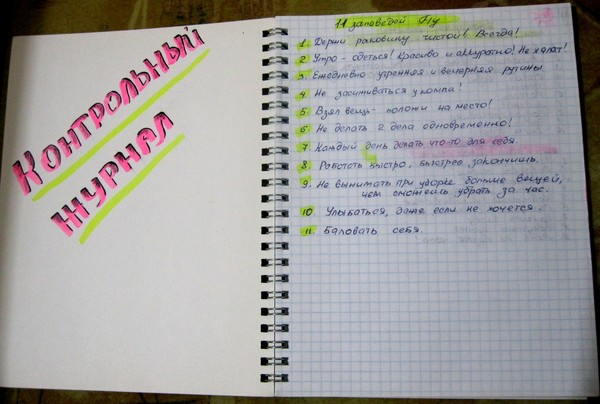 КОНТРОЛЬНЫЙ
ЖУРНАЛ
11 заповедей Флу
1. Держи раковину чистой! Всегда!
2. Утро - одеться! Красиво и аккуратно! Не халат!
3. Ежедневно утренняя и вечерняя рутины.
4. Не засиживаться у компа!
5. Взял вещь - положи на место!
6. Не делать 2 дела одновременно!
7. Каждый день делать что-то для себя.
8. Работать быстро, быстрее закончишь.
9. Не вынимать при уборке больше вещей,
чем сможешь убрать за час.
10. Улыбаться, даже если не хочется.
11. Баловать себя.